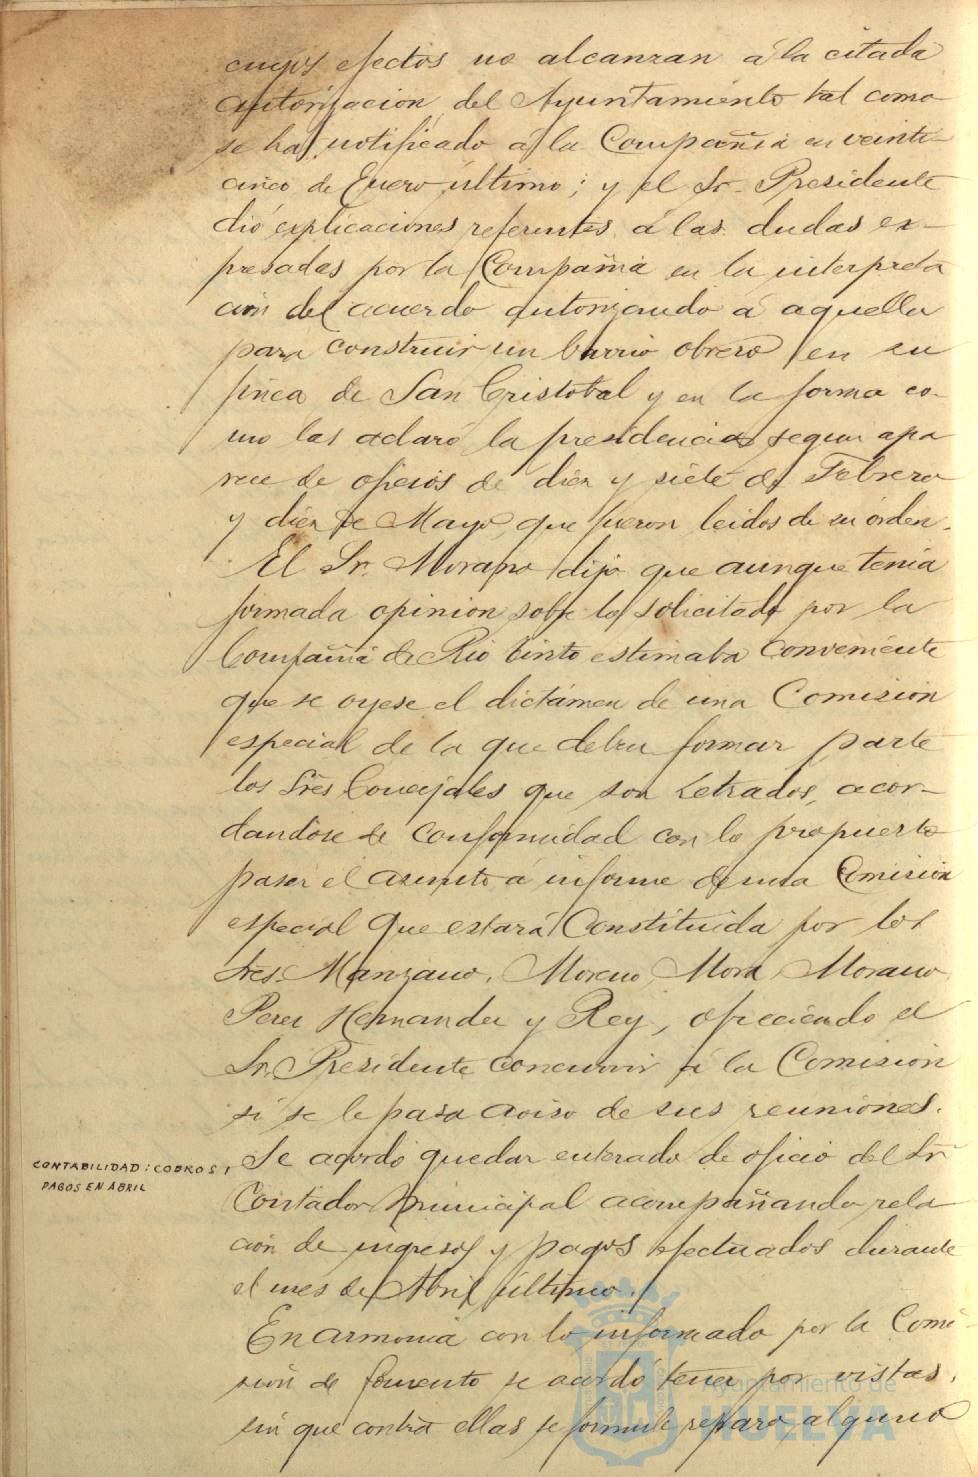 cuyos efectos no alcanzan á la citada
autorizacion del Ayuntamiento tal como
se ha notificado á la Compañia en veinti-
cinco de Enero último; y el Sr. Presidente
dió explicaciones referentes á las dudas ex-
presadas por la Compañia en la interpreta
cion del acuerdo autorizando á aquella
para construir un barrio obrero en su
finca de San Cristobal y en la forma co-
mo las aclaró la presidencia segun apa
rece de oficios de diez y siete de Febrero
y diez de Mayo, que fueron leidos de su órden.
El Sr. Morano dijo que aunque tenia
formada opinion sobre lo solicitado por la
Compañia de Rio tinto estimaba conveniente
que se oyese el dictámen de una Comision
especial de la que deben formar parte
los Sres Concejales que son Letrados, acor-
dandose de conformidad con lo propuesto
pasar el asunto á informe de una Comision
especial que estará Constituida por los
Sres. Manzano, Moreno, Mora, Morano,
Perez Hernandez y Rey, ofreciendo el
Sr. Presidente concurrir á la Comision
si se le pasa aviso de sus reuniones.
CONTABILIDAD: COBROS Y
PAGOS EN ABRIL
Se acordó quedar enterado de oficio del Sr
Contador Municipal acompañando rela
cion de ingresos y pagos efectuados durante
el mes de Abril último.
En armonia con lo informado por la Comi-
sion de fomento se acordó tener por vistas,
sin que contra ellas se formule reparo alguno
Ayuntamiento de
HUELVA